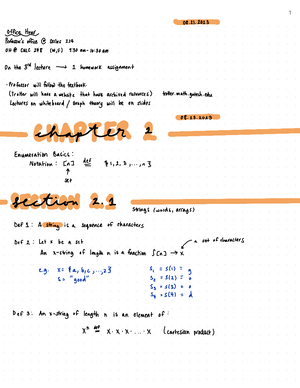 1
08.21.2023
Office Hour
Professor's office @ Skiles 224
OH @ CULC 278 (M,F) 9:30 am - 10:30 am
On the 3rd lecture → 1 homework assignment
-Professor will follow the textbook
(Trotter will have a website that have archived resources) trotter.math.gatech.edu
Lectures on whiteboard / Graph theory will be on slides
08.23.2023
chapter 2
Enumeration Basics:
Notation: [n] def = {1, 2, 3, ..., n}
set
section 2.1
Strings (words, arrays)
Def 1: A string is a sequence of characters
Def 2: Let X be a set
a set of characters
An X-string of length n is a function f[n] → X
e.g. X = {a, b, c, ..., z}
S = "good"
S₁ = S(1) = g
S₂ = S(2) = o
S₃ = S(3) = o
S₄ = S(4) = d
Def 3: An X-string of length n is an element of:
Xⁿ def = X · X · X · ... · X (cartesian product)